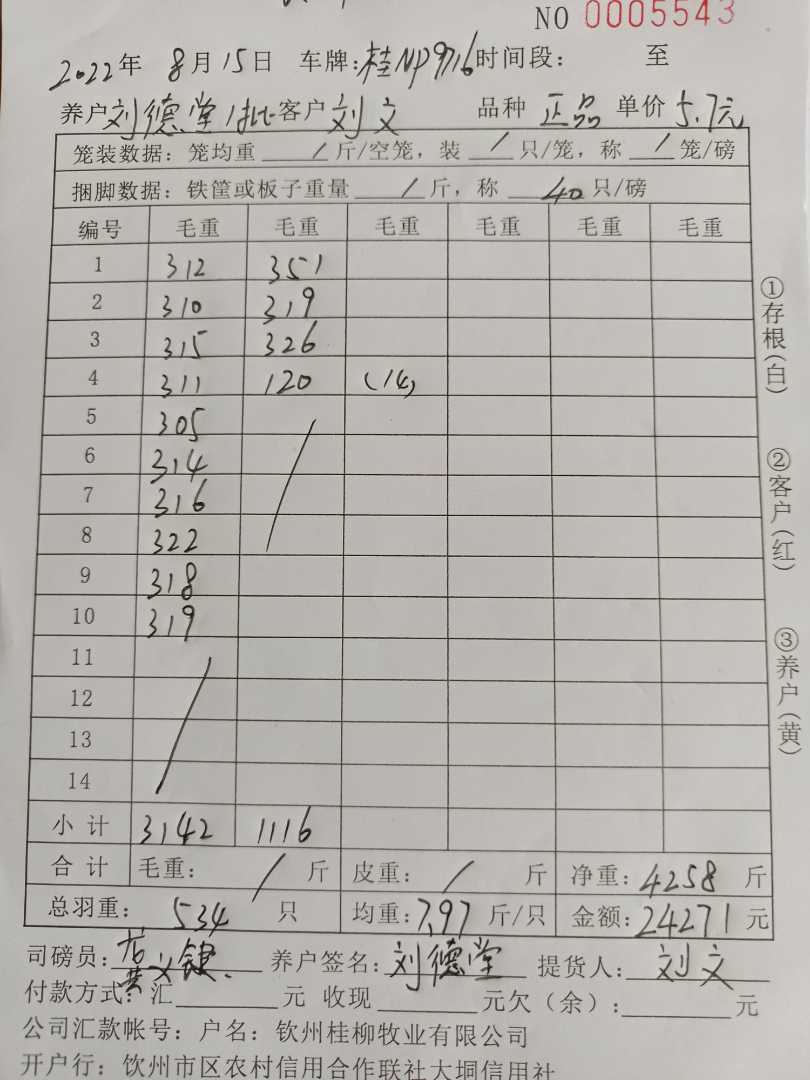 NO 0005543
2022年 8月15日 车牌:桂NP9716 时间段: 至
养户 刘德堂 1批 客户 刘文 品种 正品 单价 5.7元
笼装数据: 笼均重 / 斤/空笼, 装 / 只/笼, 称 / 笼/磅
捆脚数据: 铁筐或板子重量 / 斤, 称 40 只/磅
编号 毛重 毛重 毛重 毛重 毛重 毛重
1 312 351
2 310 319
3 315 326
4 311 120 (14)
5 305
6 314
7 316
8 322
9 318
10 319
11
12
13
14
小计 3142 1116
合计 毛重: / 斤 皮重: / 斤 净重: 4258 斤
总羽重: 534 只 均重: 7.97 斤/只 金额: 24271 元
司磅员: 养户签名: 刘德堂 提货人: 刘文
付款方式: 汇 元 收现 元欠(余): 元
公司汇款帐号: 户名: 钦州桂柳牧业有限公司
开户行: 钦州市区农村信用合作联社大垌信用社
①存根(白)
②客户(红)
③养户(黄)